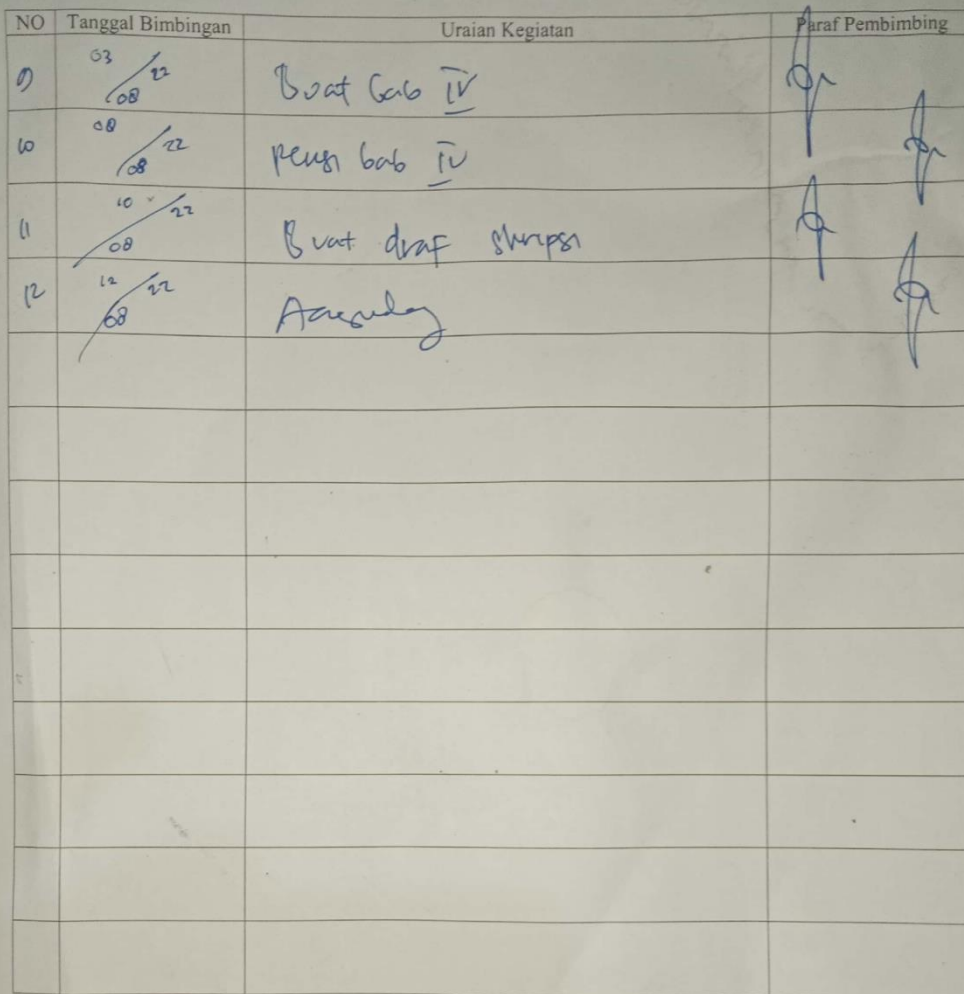 NO Tanggal Bimbingan Uraian Kegiatan Paraf Pembimbing
9 03/08/22 Buat bab IV
10 08/08/22 revisi bab IV
11 10/08/22 Buat draf skripsi
12 12/08/22